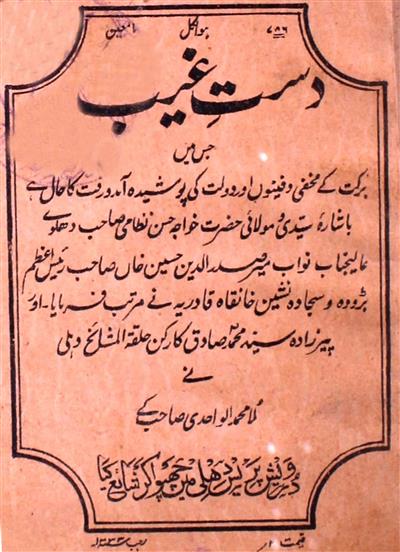 ۷۸۶ ہوا لکل المعین
دستِ غیب
جس میں
برکت کے مخفی دفینوں اور دولت کی پوشیدہ آمد و رفت کا حال ہے
باشارۂ سیّدی و مولائی حضرت خواجہ حسن نظامی صاحب دھلوی
عالیجناب نواب میر صدر الدین حسین خاں صاحب رئیس اعظم
بڑودہ و سجادہ نشین خانقاہ قادریہ نے مرتب فرمایا۔ اور
پیرزادہ سید محمد صادق کارکن حلقۃ المشائخ دہلی
نے
ملا محمد الواحدی صاحب کے
درویش پریس دھلی میں چھپوا کر شایع کیا
رجب ۱۳۳۲ھ قیمت ۲ر